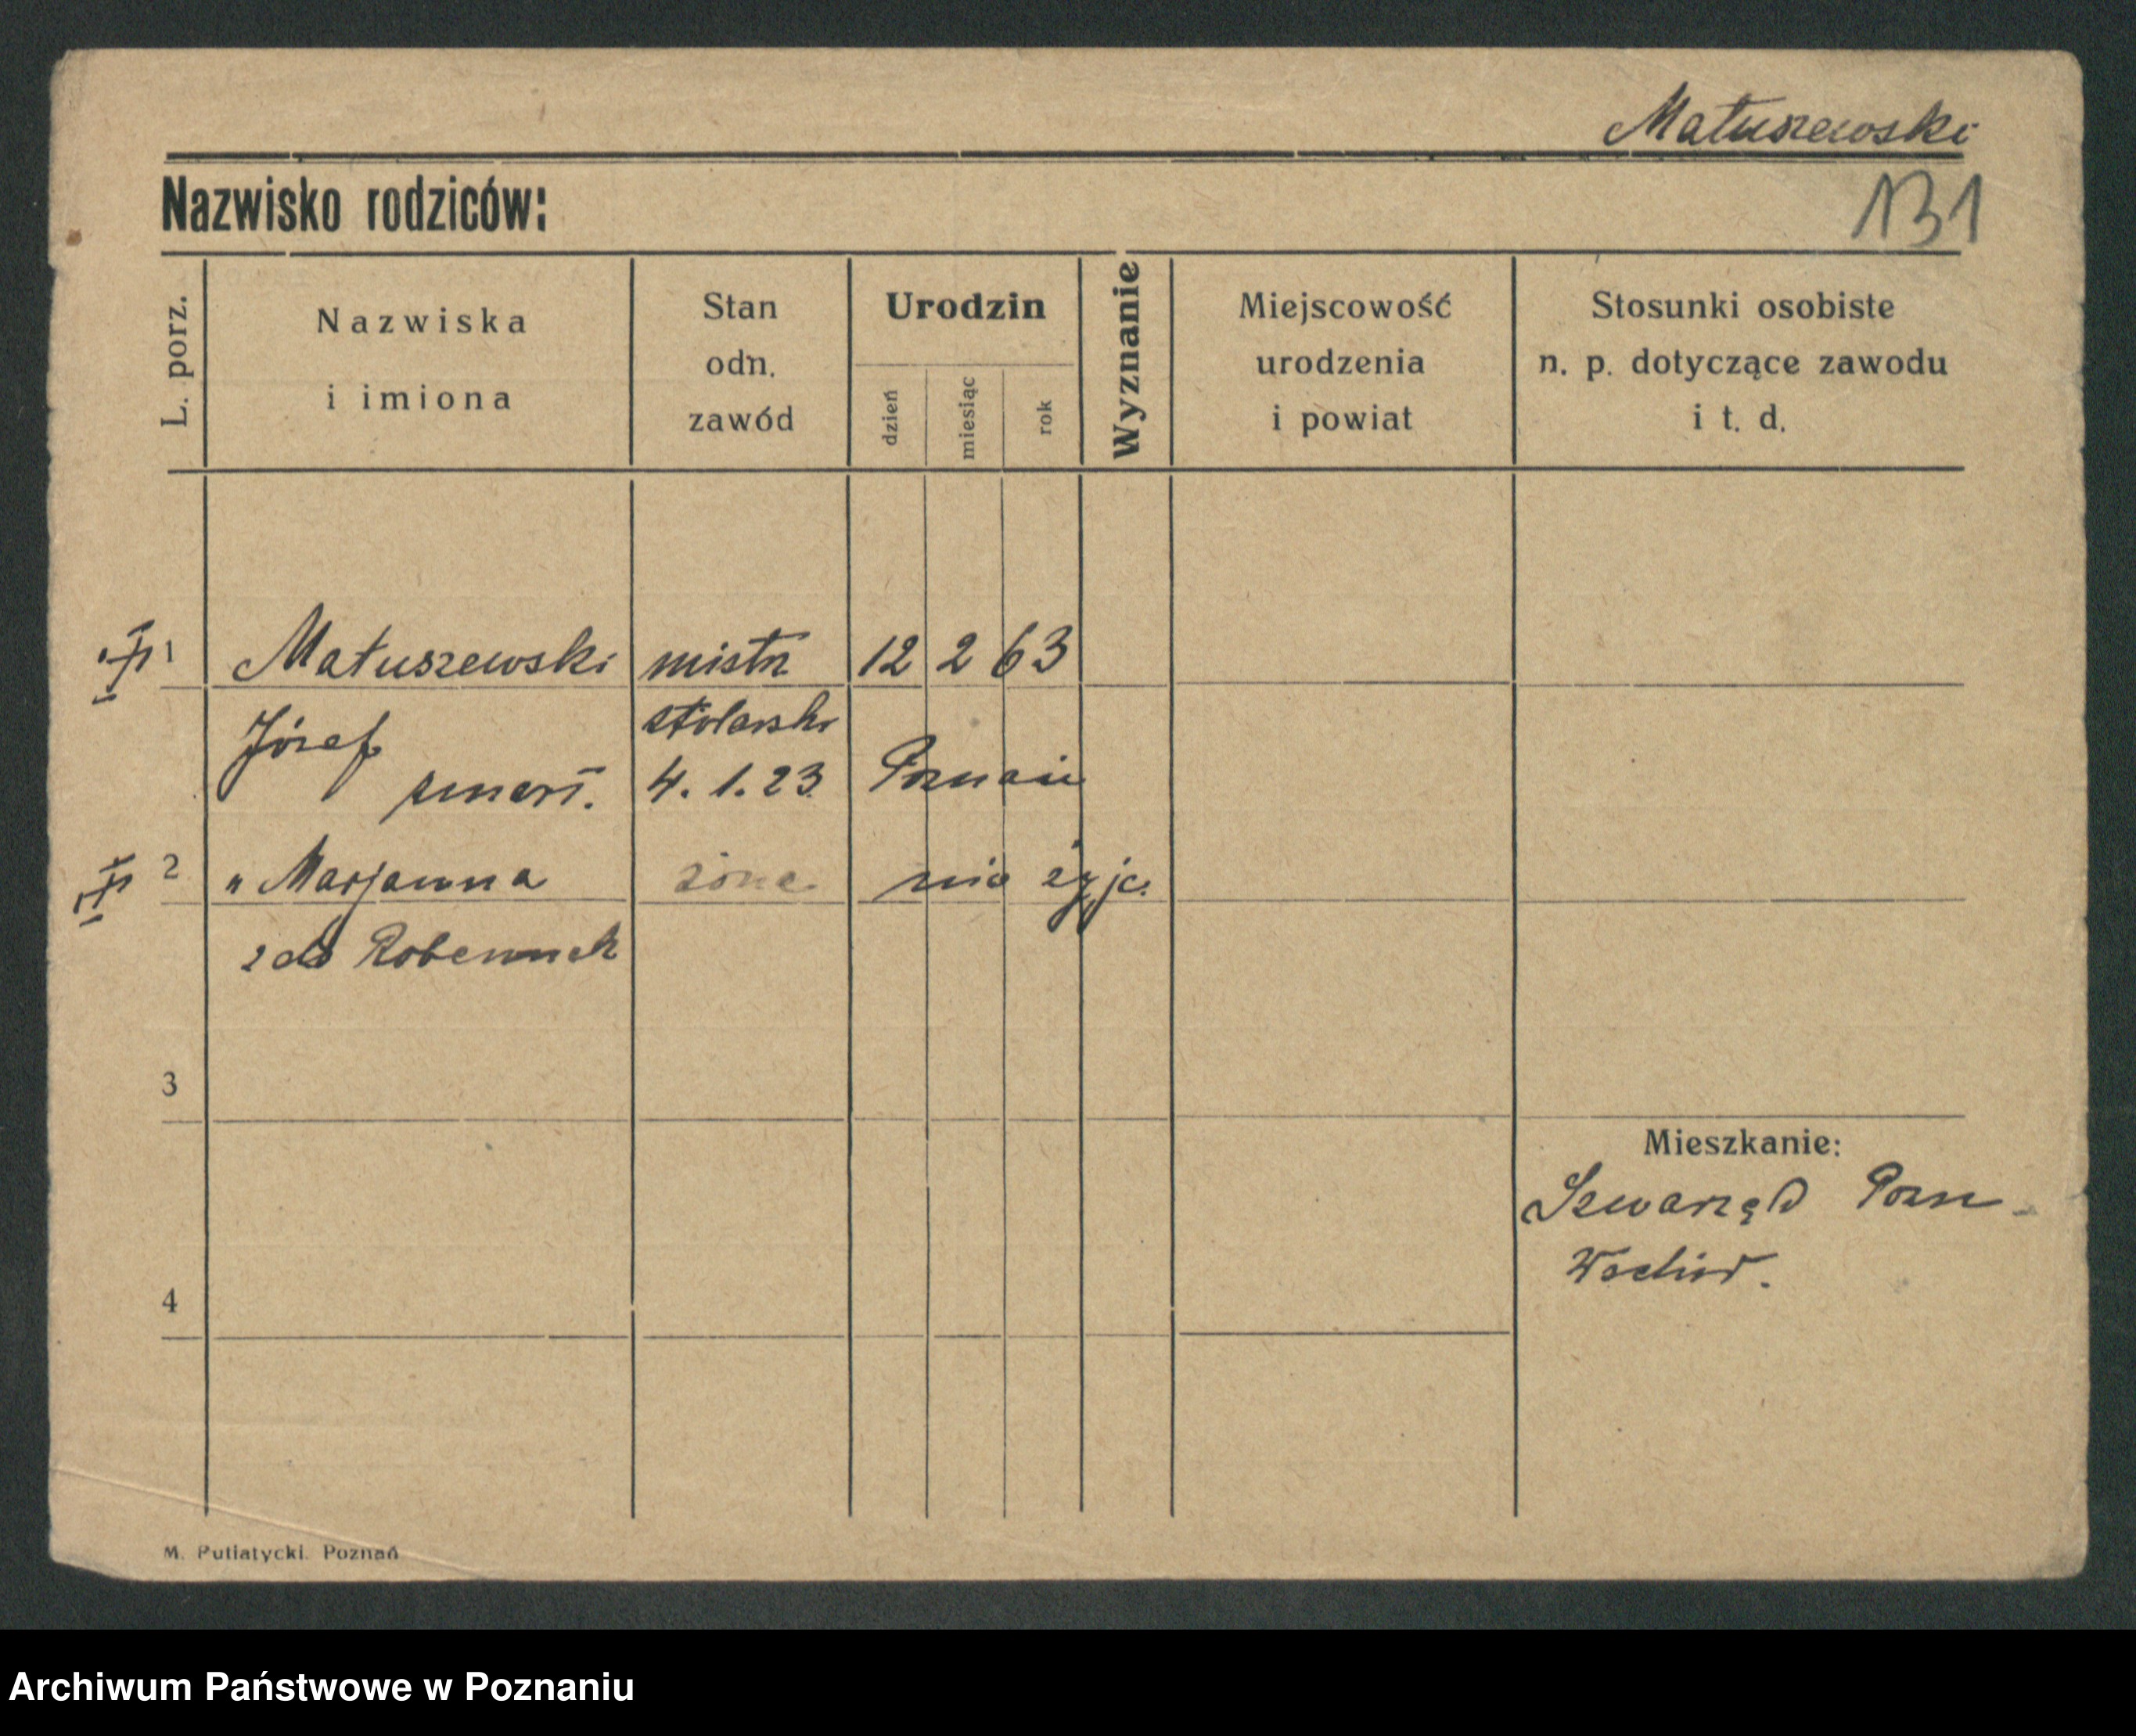 Matuszewski
Nazwisko rodziców:
131
L. porz.
Nazwiska
i imiona
Stan
odn.
zawód
Urodzin
dzień
miesiąc
rok
Wyznanie
Miejscowość
urodzenia
i powiat
Stosunki osobiste
n. p. dotyczące zawodu
i t. d.
1 Matuszewski mistrz 12 2 63
Józef stolarski
zmarł. 4.1.23. Poznań
2 " Marjanna żona nie żyje.
z do
3
Mieszkanie:
Pozn
4
M. Putiatycki. Poznań
Archiwum Państwowe w Poznaniu